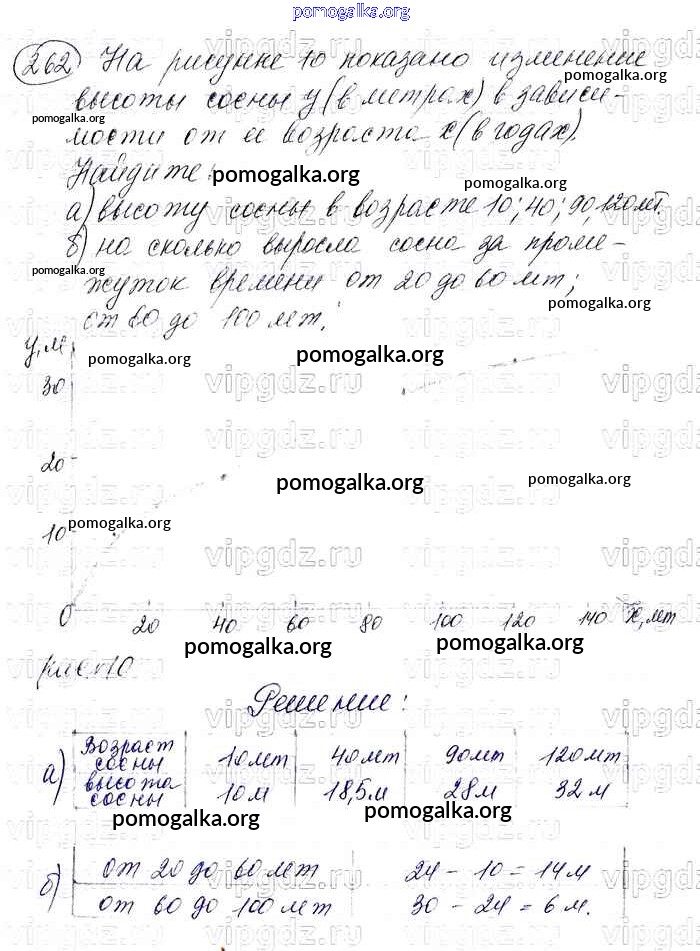 pomogalka.org
262 На рисунке 10 показано изменение
высоты сосны y (в метрах) в зависи-
мости от ее возраста x (в годах).
Найдите:
а) высоту сосны в возрасте 10; 40; 90, 120 лет.
б) на сколько выросла сосна за проме-
жуток времени от 20 до 60 лет;
от 60 до 100 лет.
y, м
30
20
10
0 20 40 60 80 100 120 140 x, лет
рис. 10
Решение:
а) Возраст сосны 10 лет 40 лет 90 лет 120 лет
высота сосны 10 м 18,5 м 28 м 32 м
б) от 20 до 60 лет 24 - 10 = 14 м
от 60 до 100 лет 30 - 24 = 6 м.
pomogalka.org
vipgdz.ru